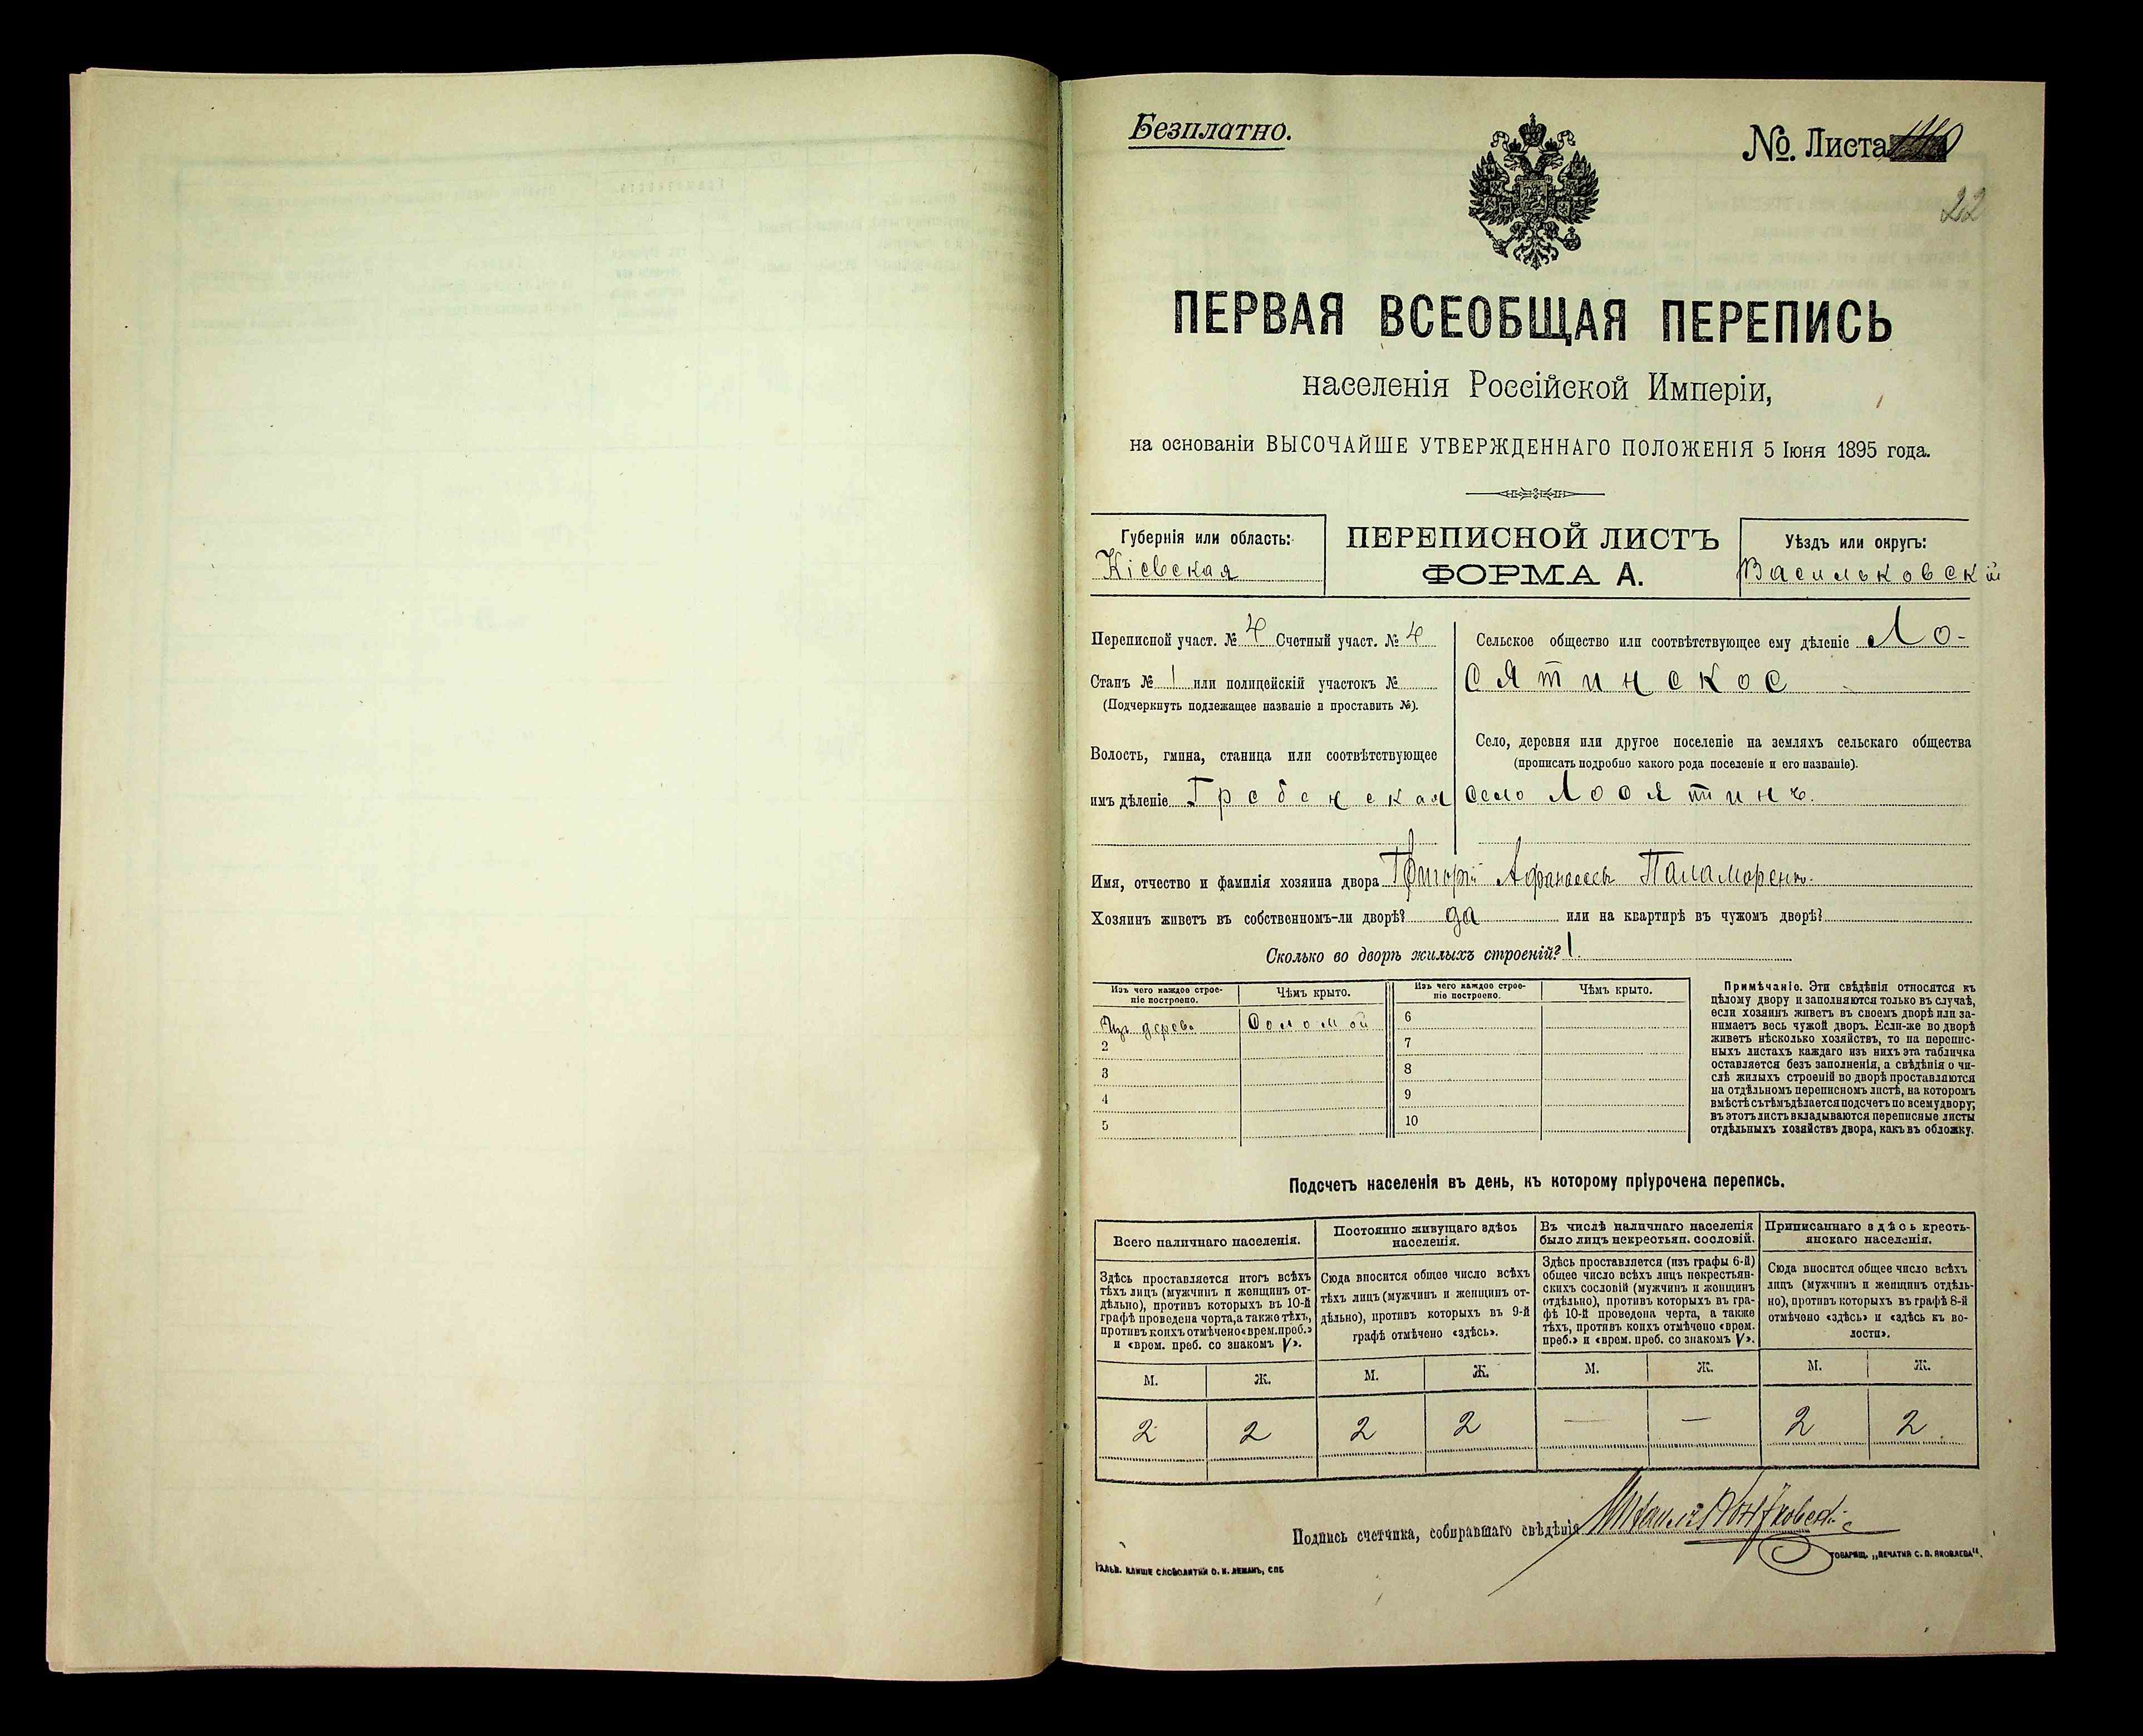 Безплатно.
№. Листа
22
ПЕРВАЯ ВСЕОБЩАЯ ПЕРЕПИСЬ
населенія Россійской Имперіи,
на основаніи ВЫСОЧАЙШЕ УТВЕРЖДЕННАГО ПОЛОЖЕНІЯ 5 Іюня 1895 года.
Губернія или область:
Кіевская
ПЕРЕПИСНОЙ ЛИСТЪ
ФОРМА А.
Уѣздъ или округъ:
Васильковскій
Переписной участ. № 4 Счетный участ. № 4
Станъ № 1 или полицейскій участокъ №
(Подчеркнуть подлежащее названіе и проставить №).
Волость, гмина, станица или соотвѣтствующее
имъ дѣленіе Гребенская
Сельское общество или соотвѣтствующее ему дѣленіе Ло-
сятинское
Село, деревня или другое поселеніе на земляхъ сельскаго общества
(прописать подробно какого рода поселеніе и его названіе).
село Лосятинъ.
Имя, отчество и фамилія хозяина двора Григорій Афанасьевъ Паламаренко.
Хозяинъ живетъ въ собственномъ-ли дворѣ? да или на квартирѣ въ чужомъ дворѣ?
Сколько во дворѣ жилыхъ строеній? 1.
Изъ чего каждое строе-
ніе построено.
Чѣмъ крыто.
Изъ чего каждое строе-
ніе построено.
Чѣмъ крыто.
Изъ дерева Соломой
2
3
4
5
6
7
8
9
10
Примѣчаніе. Эти свѣдѣнія относятся къ
цѣлому двору и заполняются только въ случаѣ,
если хозяинъ живетъ въ своемъ дворѣ или за-
нимаетъ весь чужой дворъ. Если-же во дворѣ
живетъ нѣсколько хозяйствъ, то на перепис-
ныхъ листахъ каждаго изъ нихъ эта табличка
оставляется безъ заполненія, а свѣдѣнія о чи-
слѣ жилыхъ строеній во дворѣ проставляются
на отдѣльномъ переписномъ листѣ, на которомъ
вмѣстѣ съ тѣмъ дѣлается подсчетъ по всему двору;
въ этотъ листъ вкладываются переписные листы
отдѣльныхъ хозяйствъ двора, какъ въ обложку.
Подсчетъ населенія въ день, къ которому пріурочена перепись.
Всего наличнаго населенія.
Здѣсь проставляется итогъ всѣхъ
тѣхъ лицъ (мужчинъ и женщинъ от-
дѣльно), противъ которыхъ въ 10-й
графѣ проведена черта, а также тѣхъ,
противъ коихъ отмѣчено «врем. преб.»
и «врем. преб. со знакомъ V».
Постоянно живущаго здѣсь
населенія.
Сюда вносится общее число всѣхъ
тѣхъ лицъ (мужчинъ и женщинъ от-
дѣльно), противъ которыхъ въ 9-й
графѣ отмѣчено «здѣсь».
Въ числѣ наличнаго населенія
было лицъ некрестьян. сословій.
Здѣсь проставляется (изъ графы 6-й)
общее число всѣхъ лицъ некрестьян-
скихъ сословій (мужчинъ и женщинъ
отдѣльно), противъ которыхъ въ гра-
фѣ 10-й проведена черта, а также
тѣхъ, противъ коихъ отмѣчено «врем.
преб.» и «врем. преб. со знакомъ V».
Приписаннаго здѣсь кресть-
янскаго населенія.
Сюда вносится общее число всѣхъ
лицъ (мужчинъ и женщинъ отдѣль-
но), противъ которыхъ въ графѣ 8-й
отмѣчено «здѣсь» и «здѣсь къ во-
лости».
М. Ж. М. Ж. М. Ж. М. Ж.
2 2 2 2 — — 2 2
Подпись счетчика, собиравшаго свѣдѣнія
ГАЛЬВ. КЛИШЕ СЛОВОЛИТНИ О. И. ЛЕМАНЪ, СПБ
ТОВАРИЩ. „ПЕЧАТНЯ С. П. ЯКОВЛЕВА“.